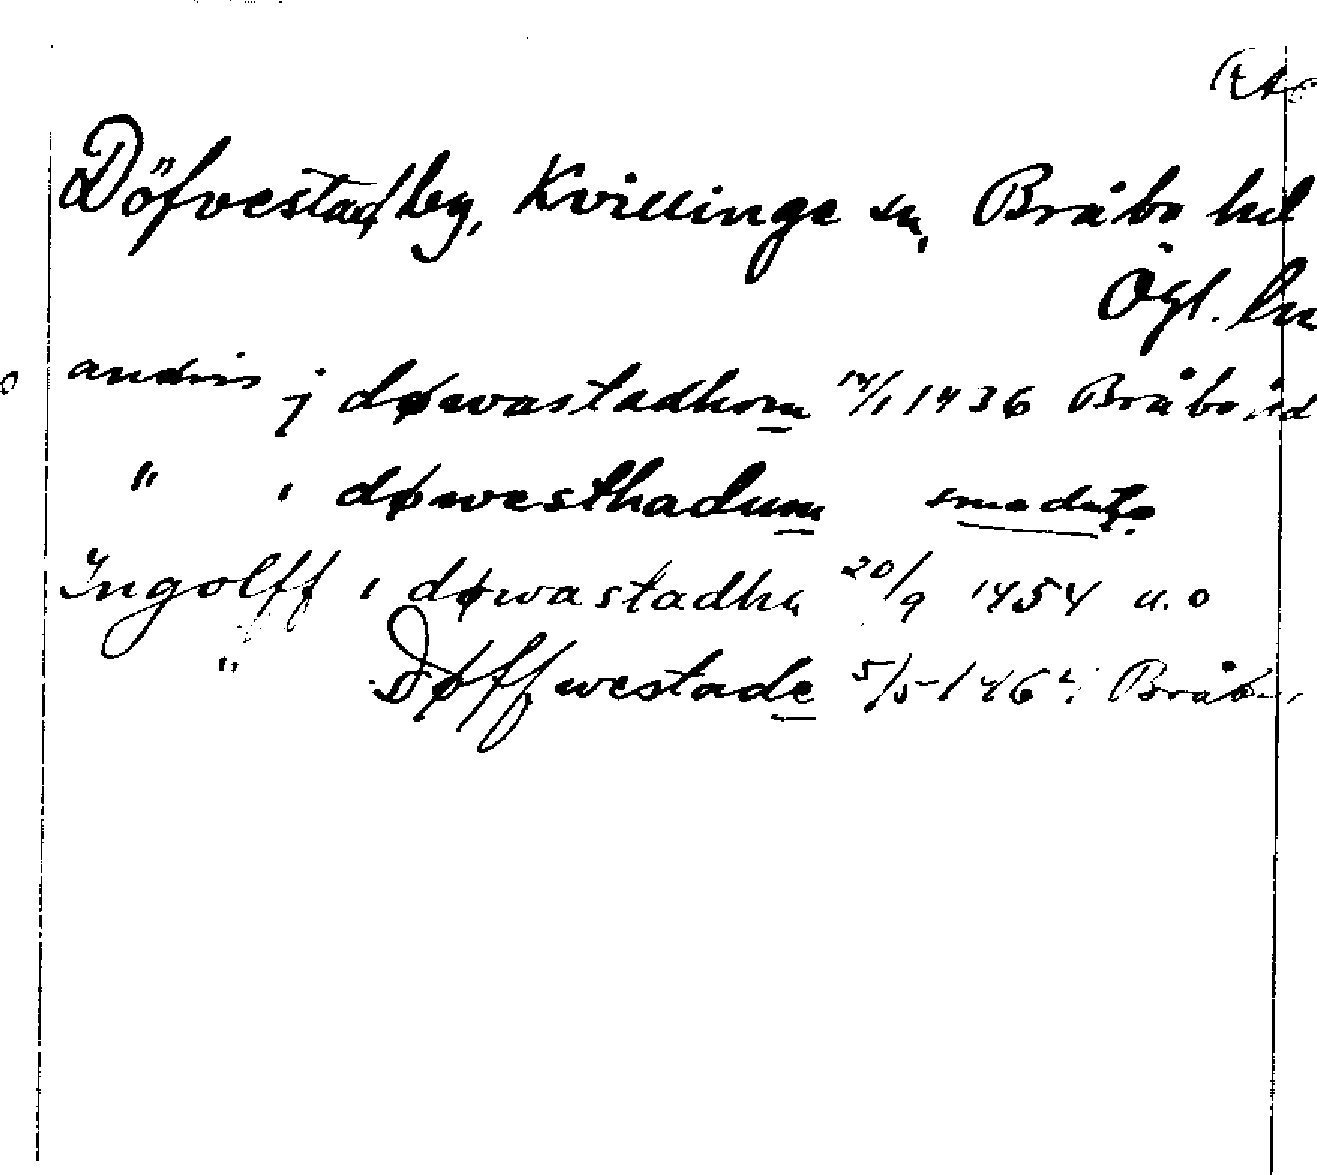 Döfvestad by, Kvillinge sn, Bråbo hd
Ögl. län
andris j døwastadhom 14/1 1436 Bråbo
" i døwesthadum
Ingolff i døwastadha 20/9 1454 u.o
" Døffwestade 5/5 146 Bråbo